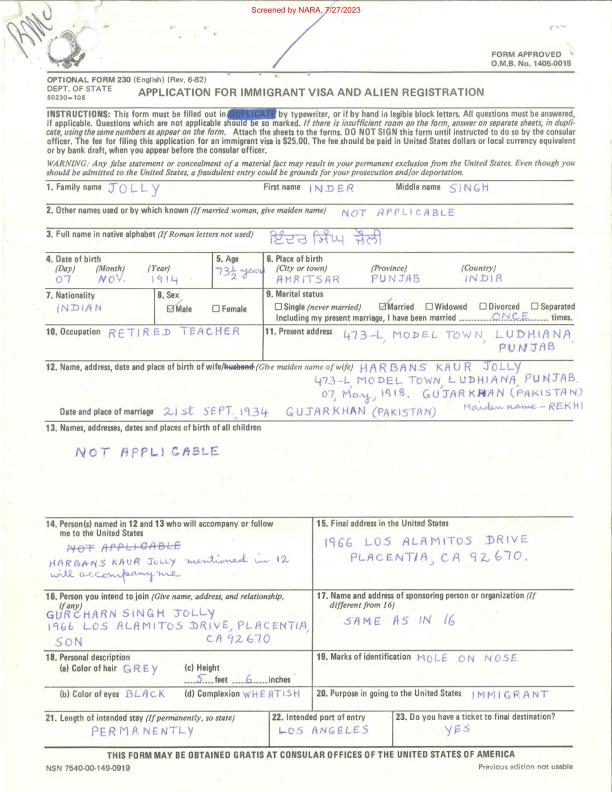 Screened by NARA, 7/27/2023
FORM APPROVED
O.M.B. No. 1405-0015
OPTIONAL FORM 230 (English) (Rev, 6-82)
DEPT. OF STATE
50230-105
APPLICATION FOR IMMIGRANT VISA AND ALIEN REGISTRATION
INSTRUCTIONS: This form must be filled out in DUPLICATE by typewriter, or if by hand in legible block letters. All questions must be answered,
if applicable. Questions which are not applicable should be so marked. If there is insufficient room on the form, answer on separate sheets, in dupli-
cate, using the same numbers as appear on the form. Attach the sheets to the forms. DO NOT SIGN this form until instructed to do so by the consular
officer. The fee for filing this application for an immigrant visa is $25.00. The fee should be paid in United States dollars or local currency equivalent
or by bank draft, when you appear before the consular officer.
WARNING: Any false statement or concealment of a material fact may result in your permanent exclusion from the United States. Even though you
should be admitted to the United States, a fraudulent entry could be grounds for your prosecution and/or deportation.
1. Family name JOLLY First name INDER Middle name SINGH
2. Other names used or by which known (If married woman, give maiden name) NOT APPLICABLE
3. Full name in native alphabet (If Roman letters not used) ਇੰਦਰ ਸਿੰਘ ਜੌਲੀ
4. Date of birth 5. Age 6. Place of birth
(Day) (Month) (Year) 73½ years (City or town) (Province) (Country)
07 NOV. 1914 AMRITSAR PUNJAB INDIA
7. Nationality 8. Sex 9. Marital status
INDIAN Male Female Single (never married) Married Widowed Divorced Separated
Including my present marriage, I have been married ONCE times.
10. Occupation RETIRED TEACHER 11. Present address 473-L, MODEL TOWN, LUDHIANA,
PUNJAB
12. Name, address, date and place of birth of wife/husband (Give maiden name of wife) HARBANS KAUR JOLLY
473-L, MODEL TOWN, LUDHIANA, PUNJAB.
07, May, 1918, GUJARKHAN (PAKISTAN)
Date and place of marriage 21st SEPT, 1934 GUJARKHAN (PAKISTAN) Maiden name - REKHI
13. Names, addresses, dates and places of birth of all children
NOT APPLICABLE
14. Person(s) named in 12 and 13 who will accompany or follow
me to the United States
NOT APPLICABLE
HARBANS KAUR JOLLY mentioned in 12
will accompany me
15. Final address in the United States
1966 LOS ALAMITOS DRIVE
PLACENTIA, CA 92670.
16. Person you intend to join (Give name, address, and relationship,
if any)
GURCHARN SINGH JOLLY
1966 LOS ALAMITOS DRIVE, PLACENTIA,
SON CA 92670
17. Name and address of sponsoring person or organization (If
different from 16)
SAME AS IN 16
18. Personal description
(a) Color of hair GREY (c) Height
5 feet 6 inches
(b) Color of eyes BLACK (d) Complexion WHEATISH
19. Marks of identification MOLE ON NOSE
20. Purpose in going to the United States IMMIGRANT
21. Length of intended stay (If permanently, so state)
PERMANENTLY
22. Intended port of entry
LOS ANGELES
23. Do you have a ticket to final destination?
YES
THIS FORM MAY BE OBTAINED GRATIS AT CONSULAR OFFICES OF THE UNITED STATES OF AMERICA
NSN 7540-00-149-0919 Previous edition not usable